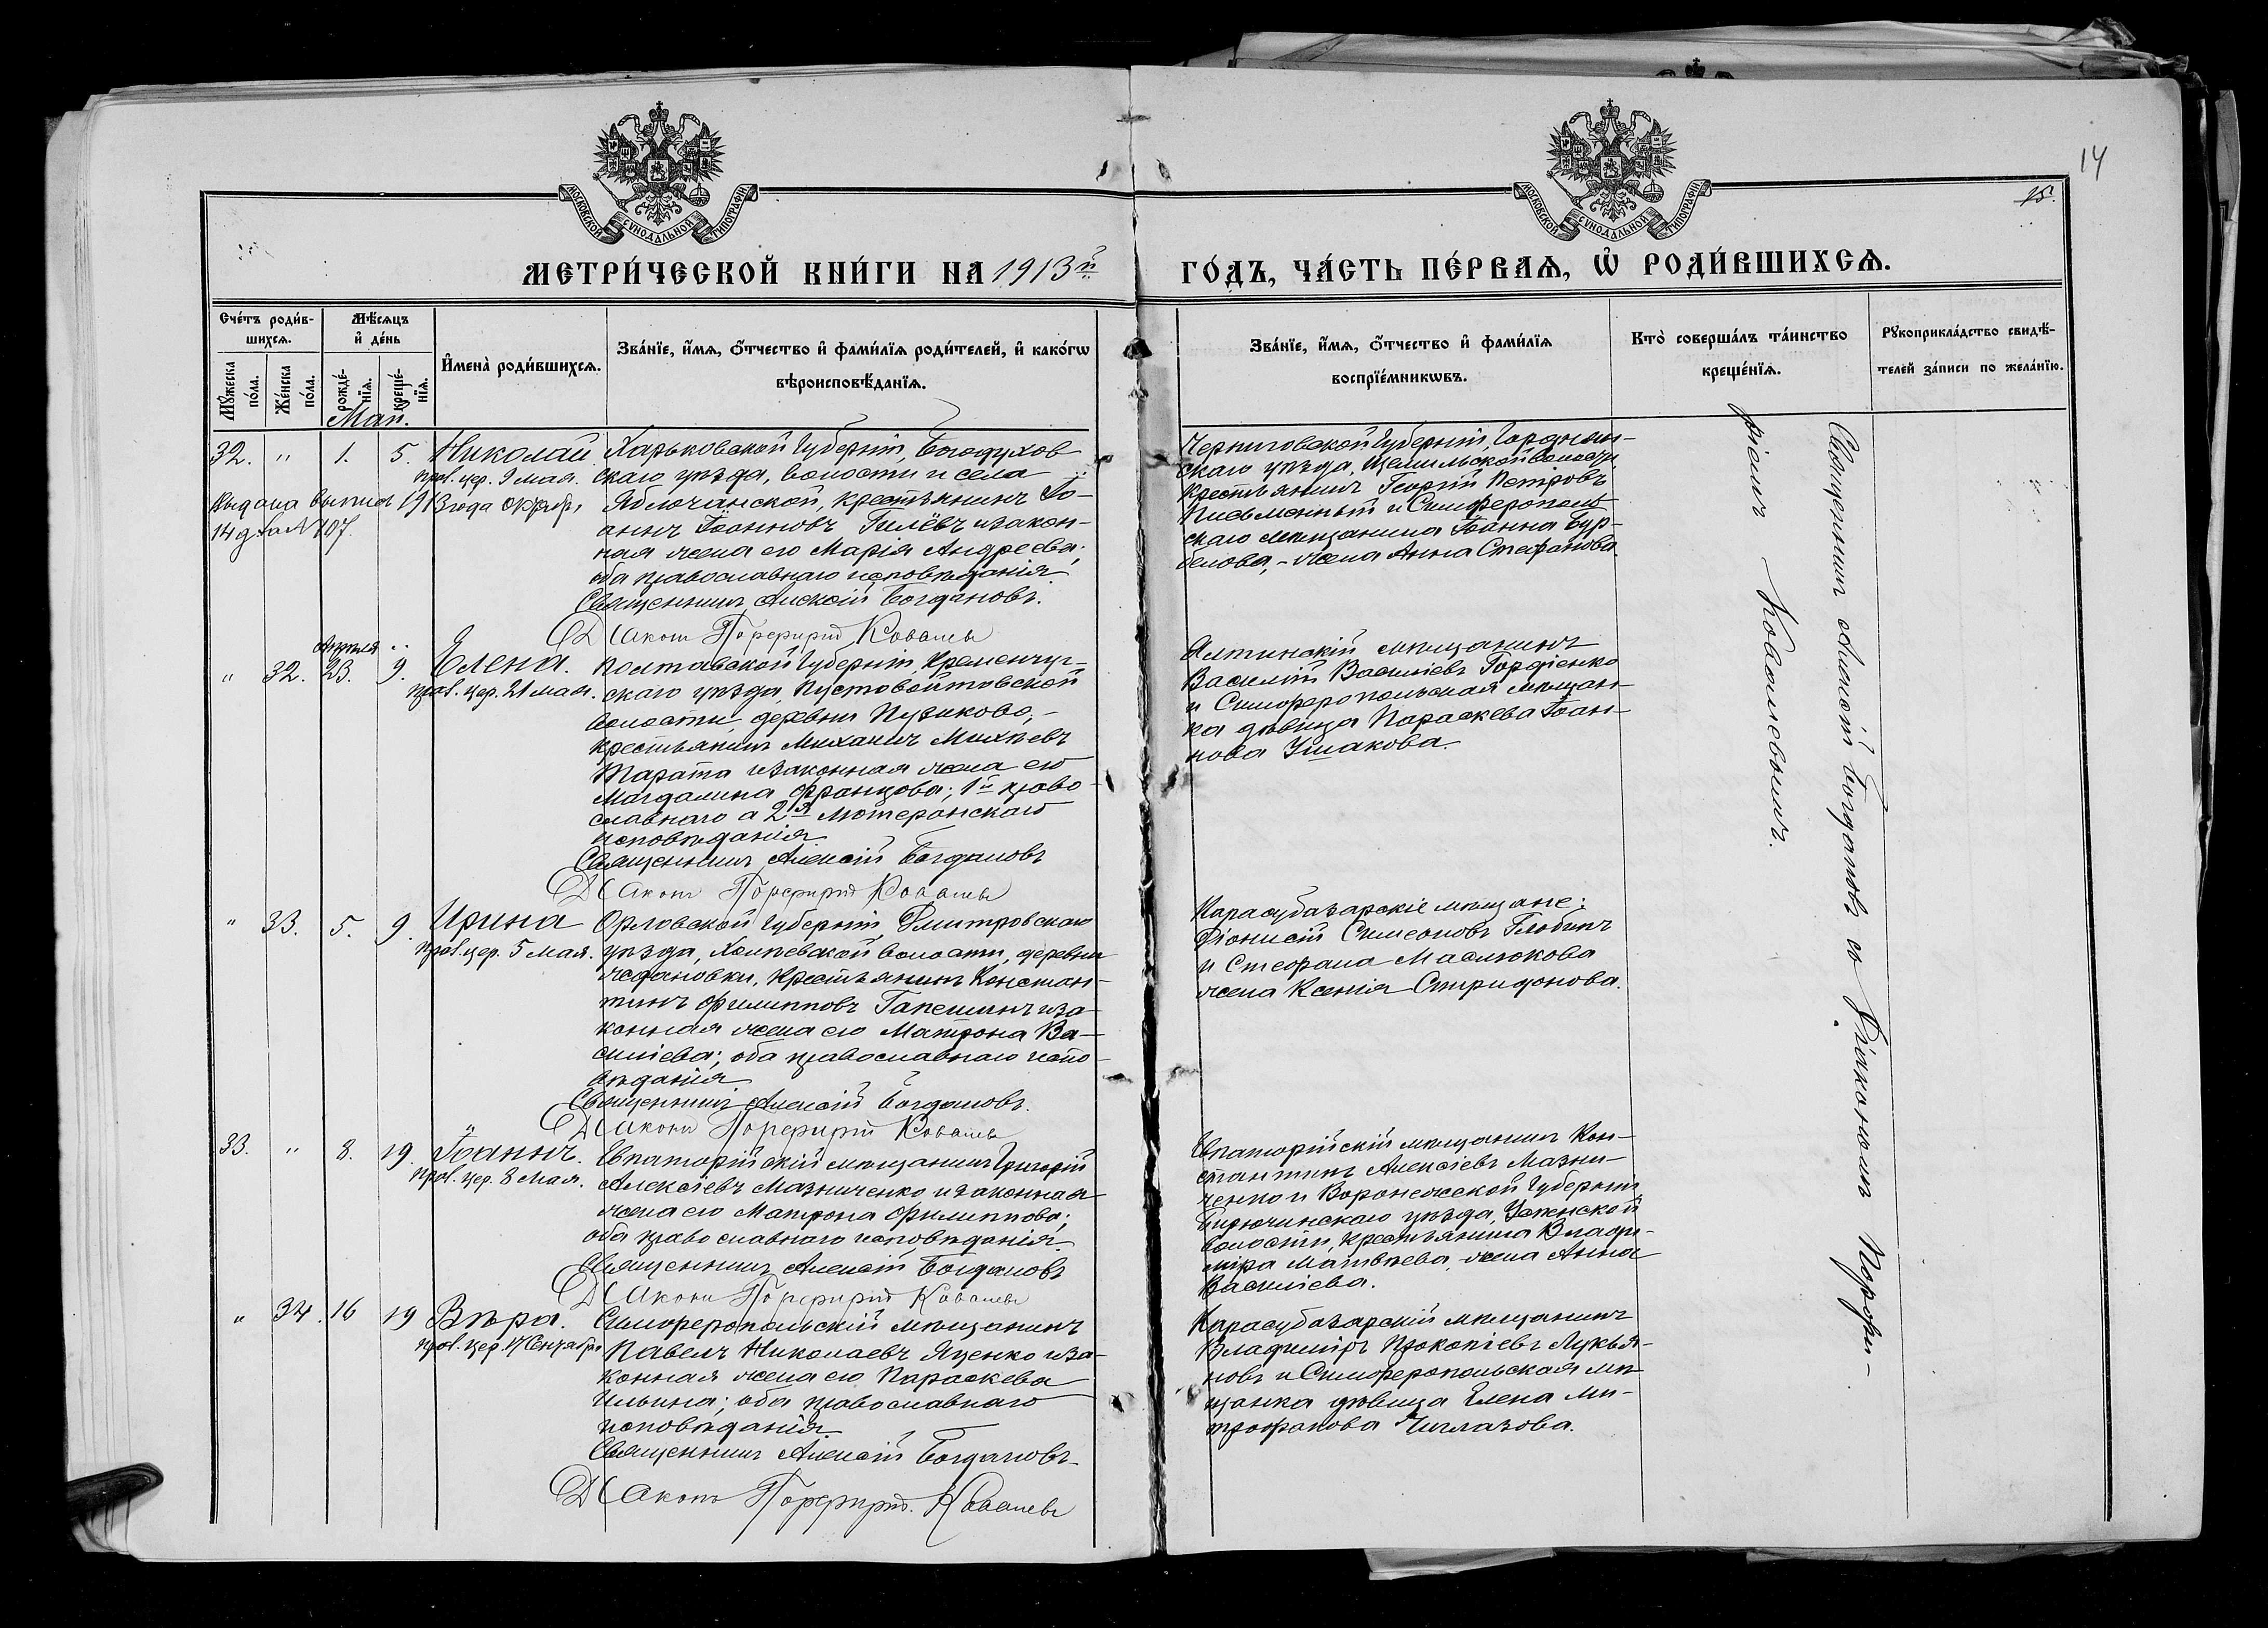 14
15.
МОСКОВСКОЙ СУНОДАЛЬНОЙ ТИПОГРАФІИ
МОСКОВСКОЙ СУНОДАЛЬНОЙ ТИПОГРАФІИ
МЕТРИ́ЧЕСКОЙ КНИ́ГИ НА 1913й
ГО́ДЪ, ЧА́СТЬ ПЕ́РВАѦ, Ѡ РОДИ́ВШИХСѦ.
Сче́тъ роди́в-
шихсѧ.
Мꙋ́жеска
по́ла.
Же́нска
по́ла.
Мѣ́сѧцъ
и҆ де́нь
рожде́-
нїѧ.
креще́-
нїѧ.
И҆мена̀ роди́вшихсѧ.
Зва́нїе, и҆́мѧ, ѻ҆́тчество и҆ фами́лїѧ роди́телей, и҆ како́гѡ
вѣроисповѣ́данїѧ.
Зва́нїе, и҆́мѧ, ѻ҆́тчество и҆ фами́лїѧ
воспрїе́мникѡвъ.
Кто̀ соверша́лъ та́инство
креще́нїѧ.
Рꙋкоприкла́дство свидѣ́-
телей за́писи по жела́нїю.
Май.
32. " 1. 5. Николай.
прав. цер. 9 мая.
Выдана выпись 1913 года Октября
14 д. за № 107.
Харьковской Губерніи, Богодухов
скаго уѣзда, волости и села
Яблочанской, крестьянинъ Іо-
аннъ Іоанновъ Гилёвъ и закон-
ная жена его Марія Андреева;
оба православнаго исповѣданія.
Священникъ Алексій Богдановъ.
Діаконъ Порфирій Ковалевъ
Черниговской Губерніи, Городнян-
скаго уѣзда, волости
крестьянинъ Георгій Петровъ
Письменный и Симферополь
скаго мѣщанина Іоанна Бур-
белова, - жена Анна Стефанова
Апрѣля
" 32. 23. 9. Елена.
прав. цер. 21 мая.
Полтавской Губерніи, Кременчуг-
скаго уѣзда, Пустовойтовской
волости, деревни Пузиково, -
крестьянинъ Михаилъ Михѣевъ
Тарата и законная жена его
Магдалина Францова; 1й право-
славнаго а 2я Лютеранскаго
исповѣданія.
Священникъ Алексій Богдановъ
Діаконъ Порфирій Ковалевъ
Ялтинскій мѣщанинъ
Василій Василіевъ Гордіенко
и Симферопольская мѣщан-
ка дѣвица Параскева Іоан-
нова Ушакова.
" 33. 5. 9. Ирина
прав. цер. 5 Мая.
Орловской Губерніи, Дмитровскаго
уѣзда, волости, деревни
крестьянинъ Констан-
тинъ Филипповъ Гапешинъ и за-
конная жена его Матрона Ва-
силіева; оба православнаго испо-
вѣданія.
Священникъ Алексій Богдановъ.
Діаконъ Порфирій Ковалевъ
Карасубазарскіе мѣщане:
Діонисій Симеоновъ Глобинъ
и Стефана Маслюкова
жена Ксенія Спиридонова.
33. " 8. 19. Іоаннъ.
прав. цер. 8 Мая.
Евпаторійскій мѣщанинъ Григорій
Алексіевъ Мазниченко и законная
жена его Матрона Филиппова;
оба православнаго исповѣданія.
Священникъ Алексій Богдановъ
Діаконъ Порфирій Ковалевъ
Евпаторійскій мѣщанинъ Кон-
стантинъ Алексіевъ Мазни-
ченко и Воронежской Губерніи,
Бирючинскаго уѣзда, Успенской
волости, крестьянина Влади-
міра Матвѣева, жена Анна
Василіева.
" 34. 16 19 Вѣра.
прав. цер. 17 Сентября
Симферопольскій мѣщанинъ
Павелъ Николаевъ Яценко и за-
конная жена его Параскева
Ильина; оба православнаго
исповѣданія.
Священникъ Алексій Богдановъ
Діаконъ Порфирій Ковалевъ
Карасубазарскій мѣщанинъ
Владиміръ Прокопіевъ Лукья-
новъ и Симферопольская мѣ-
щанка дѣвица Елена Ми-
трофанова Чиглазова.
Священникъ Алексій Богдановъ съ Діакономъ Порфи-
ріемъ Ковалевымъ.